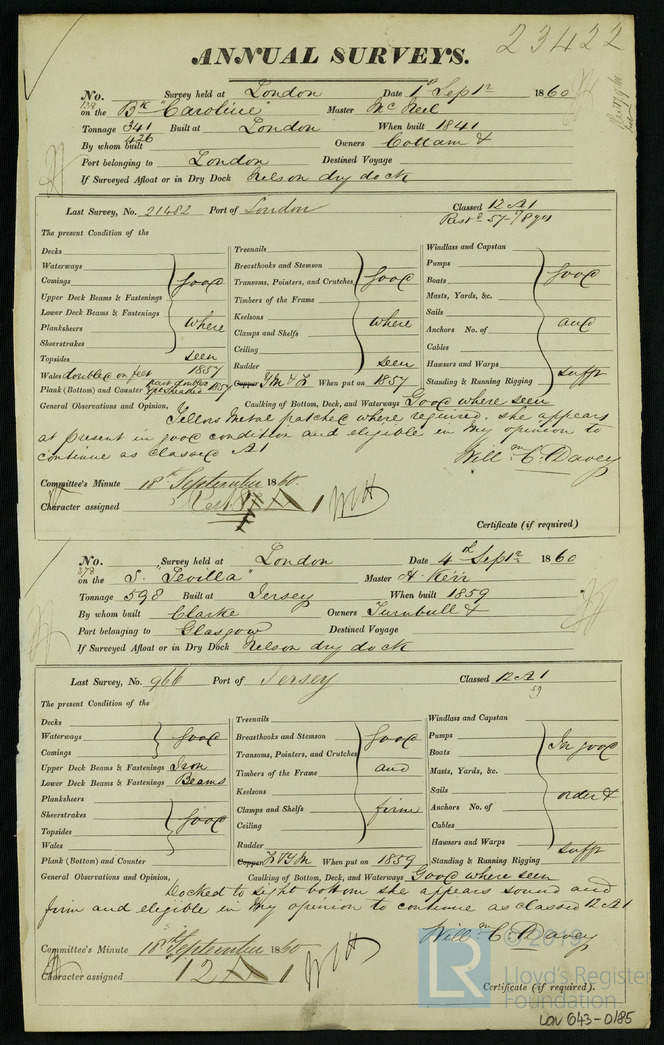 23422
ANNUAL SURVEYS.
No. 138 Survey held at London Date 1st Septr 1860
on the Bk "Caroline" Master McNeil
Tonnage 341 426 Built at London When built 1841
By whom built Owners Cottam &
Port belonging to London Destined Voyage
If Surveyed Afloat or in Dry Dock Nelson dry dock
Last Survey, No. 21482 Port of London Classed 12 A1
Restd 57-8 yrs
The present Condition of the
Decks
Waterways
Comings
Upper Deck Beams & Fastenings
Lower Deck Beams & Fastenings
Planksheers
Sheerstrakes
Topsides
good where seen
Wales doubled on felt 1857
Plank (Bottom) and Counter part doubled 1857
Treenails
Breasthooks and Stemson
Transoms, Pointers, and Crutches
Timbers of the Frame
Keelsons
Clamps and Shelfs
Ceiling
Rudder
good where seen
Copper Y M & F When put on 1857
Windlass and Capstan
Pumps
Boats
Masts, Yards, &c.
Sails
Anchors No. of
Cables
Hawsers and Warps
Standing & Running Rigging
good and sufft
Caulking of Bottom, Deck, and Waterways Good where seen
General Observations and Opinion, Yellow Metal patched where required. She appears
at present in good condition and eligible in my opinion to
continue as Classed A1
Willm C. Davey
Committee's Minute 18th September 1860.
Character assigned
Certificate (if required)
No. 378 Survey held at London Date 4th Septr 1860
on the S. "Sevilla" Master H. Kerr
Tonnage 598 Built at Jersey When built 1859
By whom built Clarke Owners Turnbull &
Port belonging to Glasgow Destined Voyage
If Surveyed Afloat or in Dry Dock Nelson dry dock
Last Survey, No. 966 Port of Jersey Classed 12 A1
59
The present Condition of the
Decks
Waterways
Comings
good
Upper Deck Beams & Fastenings Iron
Lower Deck Beams & Fastenings Beams
Planksheers
Sheerstrakes
Topsides
Wales
good
Plank (Bottom) and Counter
Treenails
Breasthooks and Stemson
Transoms, Pointers, and Crutches
Timbers of the Frame
Keelsons
Clamps and Shelfs
Ceiling
Rudder
good and firm
Copper F & Y M When put on 1859
Windlass and Capstan
Pumps
Boats
Masts, Yards, &c.
Sails
Anchors No. of
Cables
Hawsers and Warps
Standing & Running Rigging
In good order & sufft
Caulking of Bottom, Deck, and Waterways Good where seen
General Observations and Opinion, Docked to sight bottom she appears sound and
firm and eligible in my opinion to continue as classed 12 A1
Willm C. Davey
Committee's Minute 18th September 1860
Character assigned 12 A 1
Certificate (if required).
LR © 2019
Lloyd's Register
Foundation
LON 643-0185